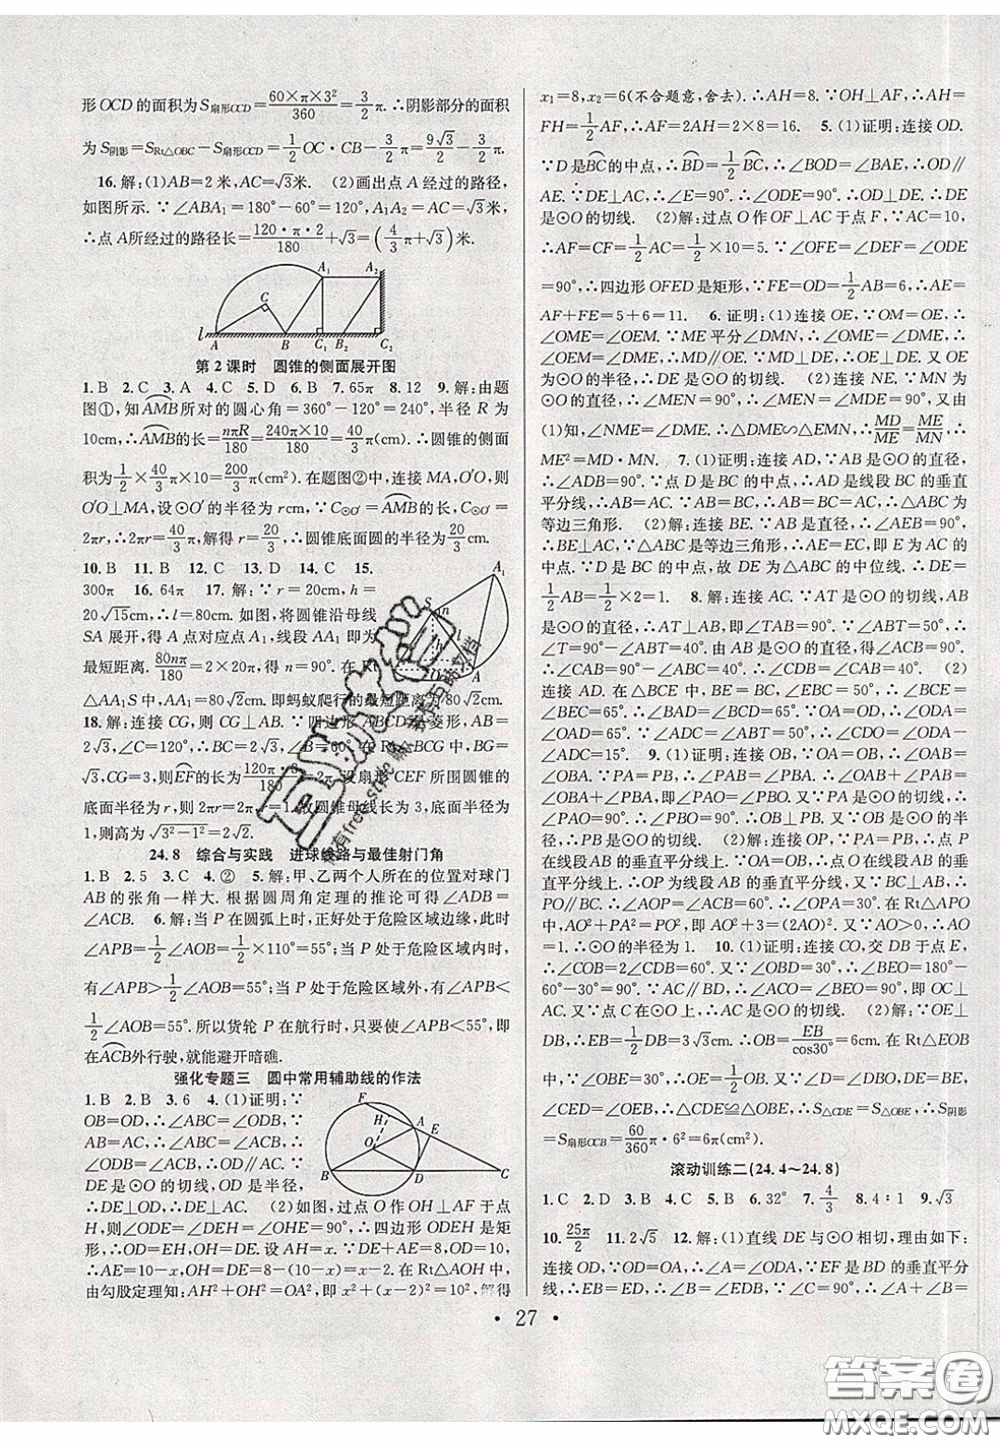 形OCD的面积为S扇形OCD=60×π×3²/360=3/2π.∴阴影部分的面积
为S阴影=S Rt△OBC-S扇形OCD=1/2OC·CB-3/2π=9√3/2-3/2π.
16.解:(1)AB=2米,AC=√3米. (2)画出点A经过的路径,
如图所示.∵∠ABA₁=180°-60°=120°,A₁A₂=AC=√3米,
∴点A所经过的路径长=120·π·2/180+√3=(4/3π+√3)米.
A₁ A₂
C
l A B C₁ B₂ C₂
第2课时 圆锥的侧面展开图
1.B 2.C 3.A 4.C 5.D 6.B 7.65π 8.12 9.解:由题
图①,知AMB所对的圆心角=360°-120°=240°,半径R为
10cm,∴AMB的长=nπR/180=240π×10/180=40/3π(cm).∴圆锥的侧面
积为1/2×40/3π×10=200/3π(cm²).在题图②中,连接MA,O'O,则
O'O⊥MA,设⊙O'的半径为r cm,∵C⊙O'=AMB的长,C⊙O'=
2πr,∴2πr=40/3π,解得r=20/3,∴圆锥底面圆的半径为20/3cm.
10.B 11.B 12.B 13.C 14.C 15.
300π 16.64π 17.解:∵r=20cm,h=
20√15cm,∴l=80cm.如图,将圆锥沿母线
SA展开,得点A对应点A₁,线段AA₁即为
最短距离.80nπ/180=2×20π,得n=90°.在Rt
△AA₁S中,AA₁=80√2cm,即蚂蚁爬行的最短距离为80√2cm.
18.解:连接CG,则CG⊥AB.∵四边形ABCD为菱形,AB=
2√3,∠C=120°,∴∠B=60°.在Rt△BCG中,BG=
√3,CG=3.∴EF的长=120π·3/180=2π.设扇形CEF所围圆锥的
底面半径为r,则2πr=2π,r=1.故圆锥母线长为3,底面半径为
1,则高为√3²-1²=2√2.
24.8 综合与实践 进球线路与最佳射门角
1.B 2.5 3.C 4.② 5.解:甲、乙两个人所在的位置对球门
AB的张角一样大.根据圆周角定理的推论可得∠ADB=
∠ACB. 6.解:当P在圆弧上时,正好处于危险区域边缘,此时
∠APB=1/2∠AOB=1/2×110°=55°;当P处于危险区域内时,
有∠APB>1/2∠AOB=55°;当P处于危险区域外,有∠APB<
1/2∠AOB=55°.所以货轮P在航行时,只要使∠APB<55°,即
在ACB外行驶,就能避开暗礁.
强化专题三 圆中常用辅助线的作法
1.B 2.B 3.6 4.(1)证明:∵
OB=OD,∴∠ABC=∠ODB,∵
AB=AC,∴∠ABC=∠ACB,
∴∠ODB=∠ACB,∴OD∥
AC. (2)如图,过点O作OH⊥AF于点
H,则∠ODE=∠DEH=∠OHE=90°,∴四边形ODEH是矩
形,∴OD=EH,OH=DE.设AH=x.∵DE+AE=8,OD=10,
∴AE=10-x,OH=DE=8-(10-x)=x-2.在Rt△AOH中,
由勾股定理知:AH²+OH²=OA²,即x²+(x-2)²=10²,解得
F H A E
O
B D C
x₁=8,x₂=6(不合题意,舍去).∴AH=8.∵OH⊥AF,∴AH=
FH=1/2AF,∴AF=2AH=2×8=16. 5.(1)证明:连接OD.
∵D是BC的中点,∴BD=1/2BC,∴∠BOD=∠BAE,∴OD∥
AE.∵DE⊥AC,∴∠E=90°,∴∠ODE=90°.∴OD⊥DE.∴DE
是⊙O的切线. (2)解:过点O作OF⊥AC于点F,∵AC=10,
∴AF=CF=1/2AC=1/2×10=5.∵∠OFE=∠DEF=∠ODE
=90°,∴四边形OFED是矩形,∵FE=OD=1/2AB=6,∴AE=
AF+FE=5+6=11. 6.证明:(1)连接OE,∵OM=OE,
∴∠OME=∠OEM.∵ME平分∠DMN,∴∠OME=∠DME,
∴∠OEM=∠DME.∵MD⊥DE,∴∠MDE=90°,∴OE⊥DE.∵OE
为⊙O的半径,∴DE是⊙O的切线. (2)连接NE.∵MN为⊙O
的直径,∴∠MEN=90°,∴∠MEN=∠MDE=90°,又由
(1)知,∠NME=∠DME.∴△DME∽△EMN,∴MD/ME=ME/MN,∴
ME²=MD·MN. 7.(1)证明:连接AD,∵AB是⊙O的直径,
∴∠ADB=90°.∵点D是BC的中点,∴AD是线段BC的垂直
平分线,∴AB=AC.∵AB=BC,∴AB=BC=AC,∴△ABC为
等边三角形. (2)解:连接BE.∵AB是直径,∴∠AEB=90°,
∴BE⊥AC.∵△ABC是等边三角形,∴AE=EC,即E为AC的
中点.∵D是BC的中点,故DE为△ABC的中位线,∴DE=
1/2AB=1/2×2=1. 8.解:连接AC.∵AT是⊙O的切线,AB是
⊙O的直径,∴AT⊥AB,即∠TAB=90°.∵∠ABT=50°,
∴∠T=90°-∠ABT=40°.由AB是⊙O的直径,得∠ACB=
90°,∴∠CAB=90°-∠ABC=40°,∴∠CDB=∠CAB=40°. (2)
连接AD.在△BCE中,BE=BC,∠EBC=50°,∴∠BCE=
∠BEC=65°,∴∠BAD=∠BCD=65°.∵OA=OD,∴∠ODA=
∠OAD=65°.∵∠ADC=∠ABC=50°,∴∠CDO=∠ODA-
∠ADC=15°. 9.(1)证明:连接OB,∵OA=OB,∴∠OAB=
∠OBA.∵PA=PB,∴∠PAB=∠PBA,∴∠OAB+∠PAB=
∠OBA+∠PBA,即∠PAO=∠PBO.又∵PA是⊙O的切线,
∴∠PAO=90°,∴∠PBO=90°,∴OB⊥PB.又∵OB是⊙O的半
径,∴PB是⊙O的切线. (2)解:连接OP.∵PA=PB,∴点P在
线段AB的垂直平分线上.∵OA=OB,∴点O在线段AB的垂
直平分线上,∴OP为线段AB的垂直平分线.又∵BC⊥AB,∴
PO∥BC,∴∠AOP=∠ACB=60°.∴∠OPA=30°.在Rt△APO
中,AO²+PA²=PO²,即AO²+3=(2AO)².又∵AO>0,∴AO=
1.∴⊙O的半径为1. 10.(1)证明:连接CO,交DB于点E,
∴∠BOC=2∠CDB=60°.又∵∠OBE=30°,∴∠BEO=180°-
60°-30°=90°.∵AC∥BD,∴∠ACO=∠BEO=90°,即OC⊥
AC.又∵点C在⊙O上,∴AC是⊙O的切线. (2)解:∵OE⊥
DB,∴EB=1/2DB=3√3cm.在Rt△EOB中,
∵∠OBD=30°,∴OB=EB/cos30°=6cm.又∵∠CDB=30°,DE=BE,
∠CED=∠OEB,∴△CDE≌△OBE,∴S△CDE=S△OBE,∴S阴影
=S扇形OCB=60/360π·6²=6π(cm²).
滚动训练二(24.4～24.8)
1.C 2.D 3.C 4.C 5.B 6.32° 7.4/3 8.4∶1 9.√3
10.25π/2 11.2√5 12.解:(1)直线DE与⊙O相切,理由如下:
连接OD,∵OD=OA,∴∠A=∠ODA,∵EF是BD的垂直平分
线,∴EB=ED,∴∠B=∠EDB,∵∠C=90°,∴∠A+∠B=
• 27 •
答案圈
MXQE.COM